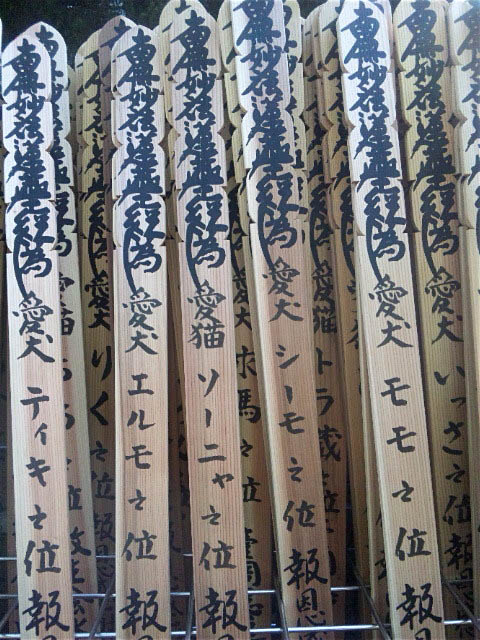 南無妙法蓮華経為愛犬いっさ之位報
南無妙法蓮華経為愛犬モモ之位報
愛猫トラ
南無妙法蓮華経為愛犬シーモ之位報恩
南無妙法蓮華経為愛猫ソーニャ之位報
南無妙法蓮華経為愛犬エルモ之位報
愛犬りく之位報恩
愛猫
南無妙法蓮華経為愛犬ティキ之位報